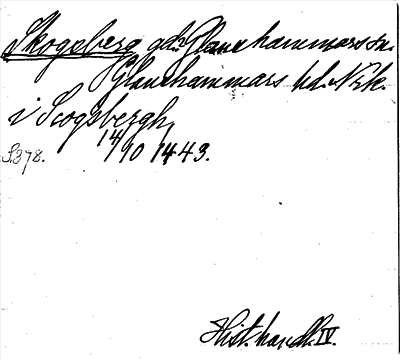 Skogsberg gd. Glanshammars sn.
Glanshammars hd. Nrk.
i Scogsbergh
14/10 1443.
S. 378.
Hist. handl. IV.